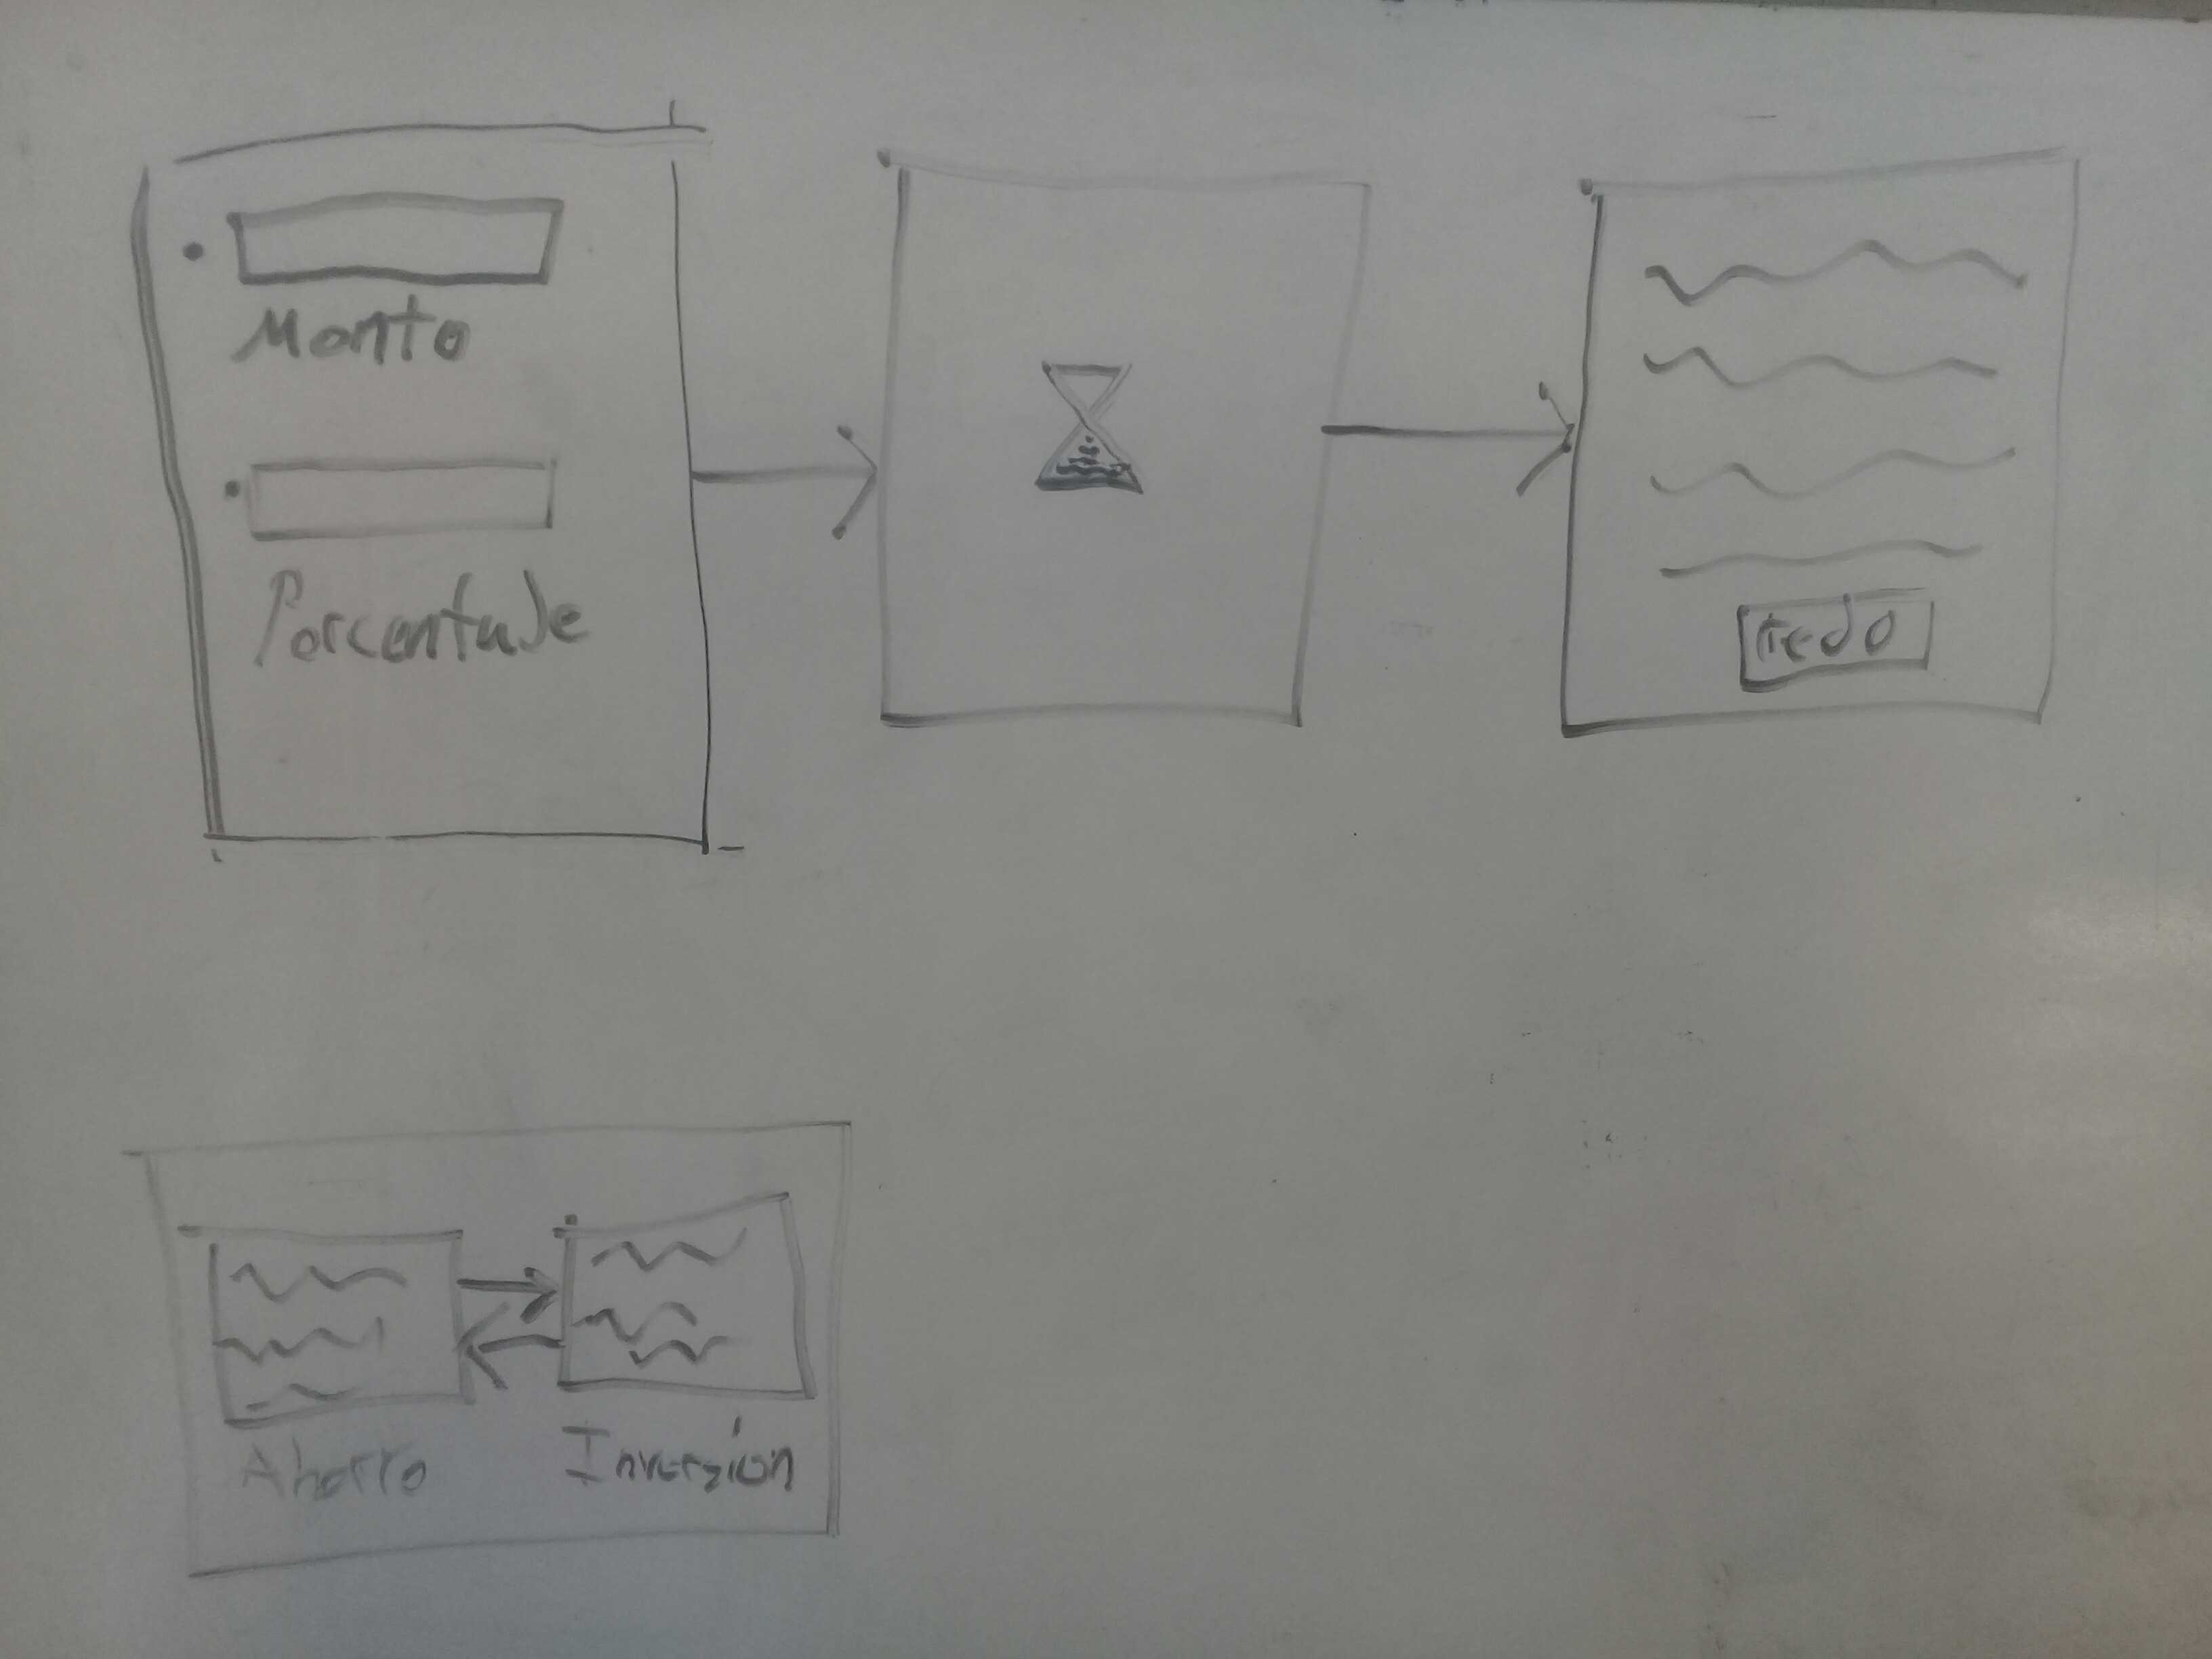 Monto
Porcentaje
redo
Ahorro
Inversión